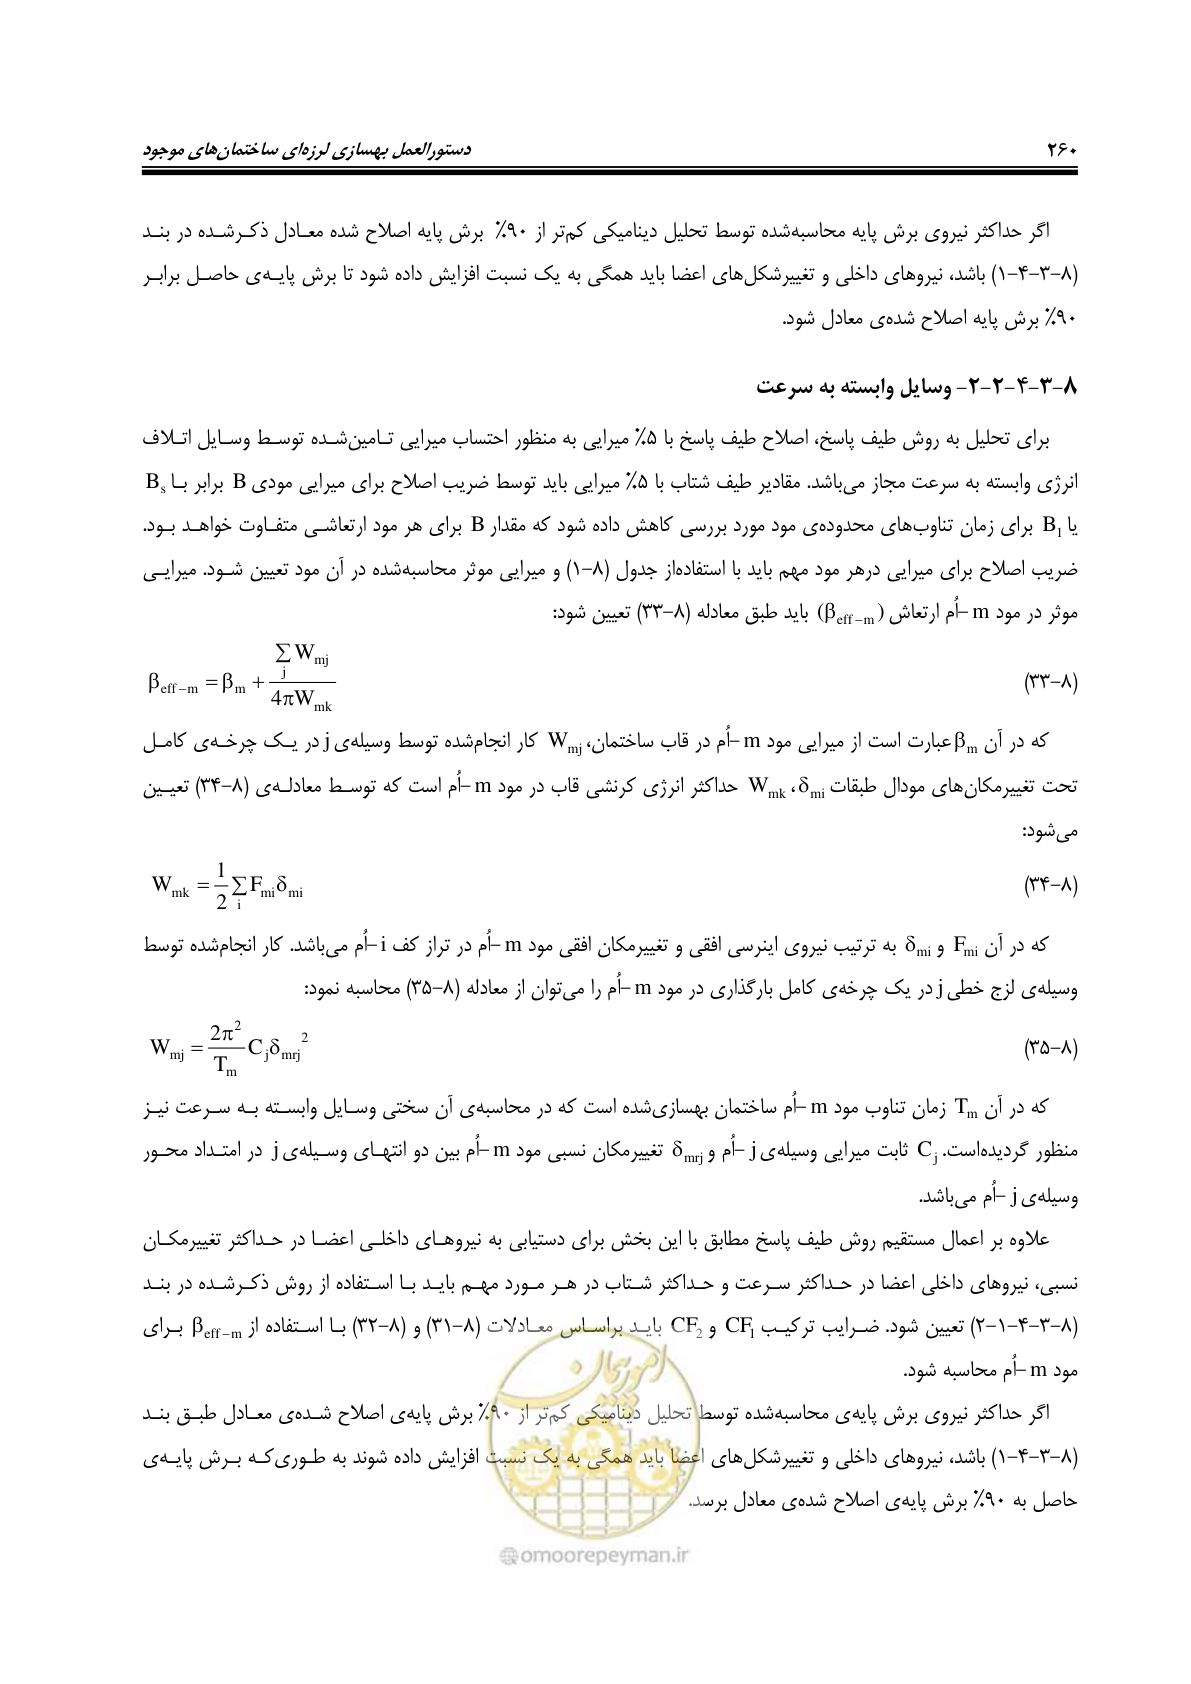 ۲۶۰ دستورالعمل بهسازی لرزه‌ای ساختمان‌های موجود
اگر حداکثر نیروی برش پایه محاسبه‌شده توسط تحلیل دینامیکی کم‌تر از ۹۰٪ برش پایه اصلاح شده معـادل ذکـرشـده در بنـد
(۸-۳-۴-۱) باشد، نیروهای داخلی و تغییرشکل‌های اعضا باید همگی به یک نسبت افزایش داده شود تا برش پایـه‌ی حاصـل برابـر
۹۰٪ برش پایه اصلاح شده‌ی معادل شود.
۸-۳-۴-۲-۲- وسایل وابسته به سرعت
برای تحلیل به روش طیف پاسخ، اصلاح طیف پاسخ با ۵٪ میرایی به منظور احتساب میرایی تـامین‌شـده توسـط وسـایل اتـلاف
انرژی وابسته به سرعت مجاز می‌باشد. مقادیر طیف شتاب با ۵٪ میرایی باید توسط ضریب اصلاح برای میرایی مودی B برابر بـا Bs
یا B1 برای زمان تناوب‌های محدوده‌ی مود مورد بررسی کاهش داده شود که مقدار B برای هر مود ارتعاشـی متفـاوت خواهـد بـود.
ضریب اصلاح برای میرایی درهر مود مهم باید با استفاده‌از جدول (۸-۱) و میرایی موثر محاسبه‌شده در آن مود تعیین شـود. میرایـی
موثر در مود m-اُم ارتعاش (βeff−m) باید طبق معادله (۸-۳۳) تعیین شود:
(۸-۳۳) βeff−m = βm + ∑j Wmj / 4πWmk
که در آن βm عبارت است از میرایی مود m-اُم در قاب ساختمان، Wmj کار انجام‌شده توسط وسیله‌ی j در یـک چرخـه‌ی کامـل
تحت تغییرمکان‌های مودال طبقات δmi، Wmk حداکثر انرژی کرنشی قاب در مود m-اُم است که توسـط معادلـه‌ی (۸-۳۴) تعیـین
می‌شود:
(۸-۳۴) Wmk = 1/2 ∑i Fmiδmi
که در آن Fmi و δmi به ترتیب نیروی اینرسی افقی و تغییرمکان افقی مود m-اُم در تراز کف i-اُم می‌باشد. کار انجام‌شده توسط
وسیله‌ی لزج خطی j در یک چرخه‌ی کامل بارگذاری در مود m-اُم را می‌توان از معادله (۸-۳۵) محاسبه نمود:
(۸-۳۵) Wmj = 2π²/Tm Cjδmrj²
که در آن Tm زمان تناوب مود m-اُم ساختمان بهسازی‌شده است که در محاسبه‌ی آن سختی وسـایل وابسـته بـه سـرعت نیـز
منظور گردیده‌است. Cj ثابت میرایی وسیله‌ی j-اُم و δmrj تغییرمکان نسبی مود m-اُم بین دو انتهـای وسـیله‌ی j در امتـداد محـور
وسیله‌ی j-اُم می‌باشد.
علاوه بر اعمال مستقیم روش طیف پاسخ مطابق با این بخش برای دستیابی به نیروهـای داخلـی اعضـا در حـداکثر تغییرمکـان
نسبی، نیروهای داخلی اعضا در حـداکثر سـرعت و حـداکثر شـتاب در هـر مـورد مهـم بایـد بـا اسـتفاده از روش ذکـرشـده در بند
(۸-۳-۴-۱-۲) تعیین شود. ضـرایب ترکیـب CF1 و CF2 بایـد براسـاس معـادلات (۸-۳۱) و (۸-۳۲) بـا اسـتفاده از βeff−m بـرای
مود m-اُم محاسبه شود.
اگر حداکثر نیروی برش پایه‌ی محاسبه‌شده توسط تحلیل دینامیکی کم‌تر از ۹۰٪ برش پایه‌ی اصلاح شـده‌ی معـادل طبـق بنـد
(۸-۳-۴-۱) باشد، نیروهای داخلی و تغییرشکل‌های اعضا باید همگی به یک نسبت افزایش داده شوند به طـوری‌کـه بـرش پایـه‌ی
حاصل به ۹۰٪ برش پایه‌ی اصلاح شده‌ی معادل برسد.
امورپیمان
@omoorepeyman.ir